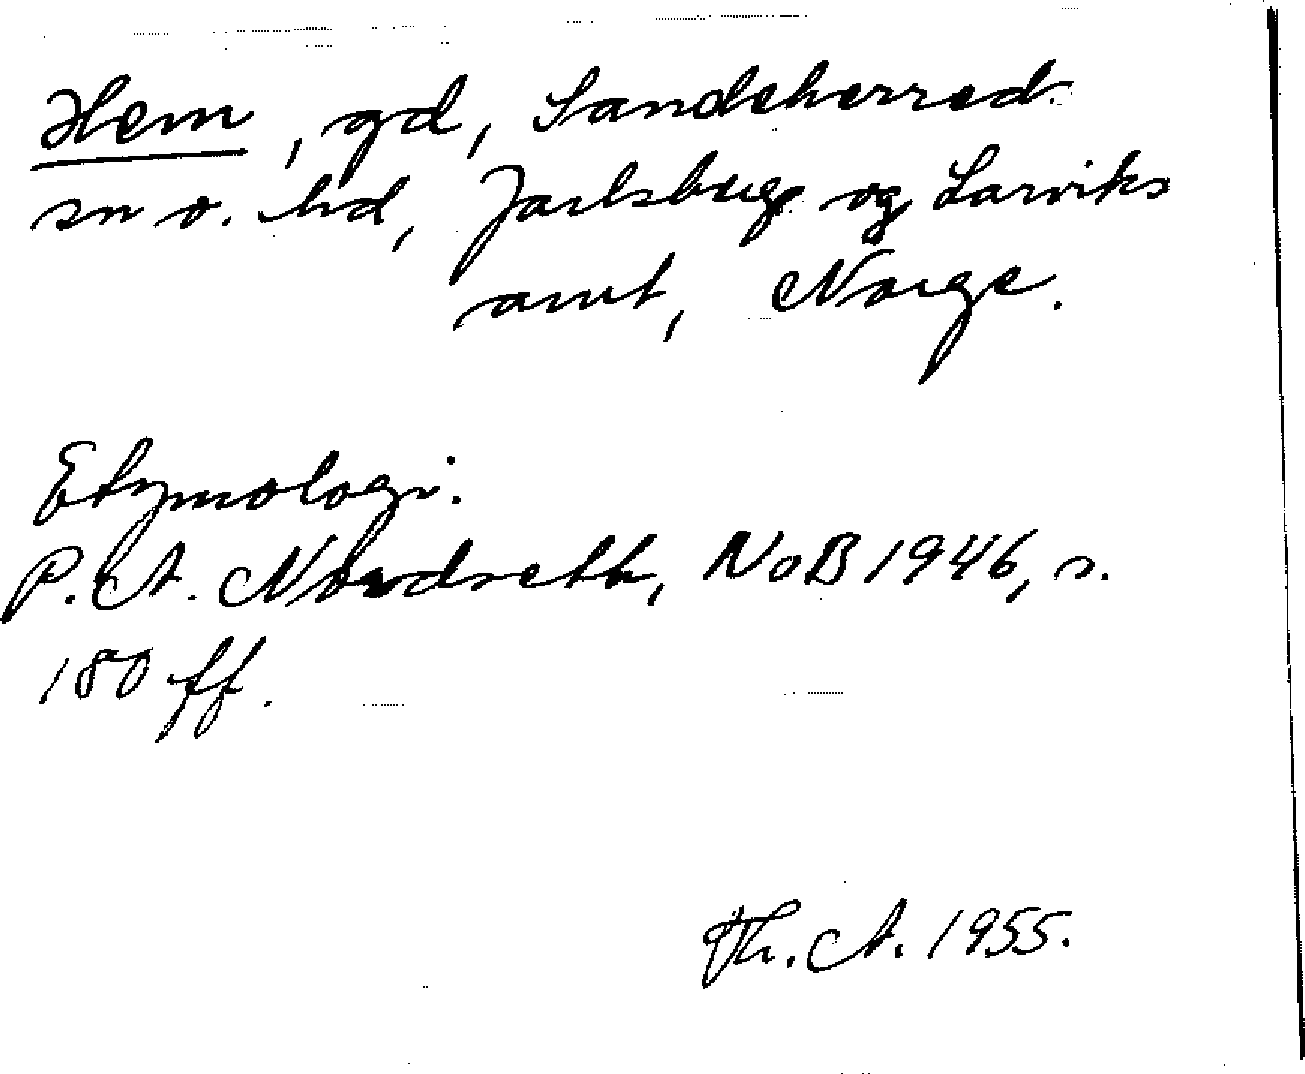 Hem, gd, Sandeherred
sn o. hd, Jarlsberg og Larviks
amt, Norge.
Etymologi:
P. A. Nordseth, NoB 1946, s.
180 ff.
Th. A. 1955.